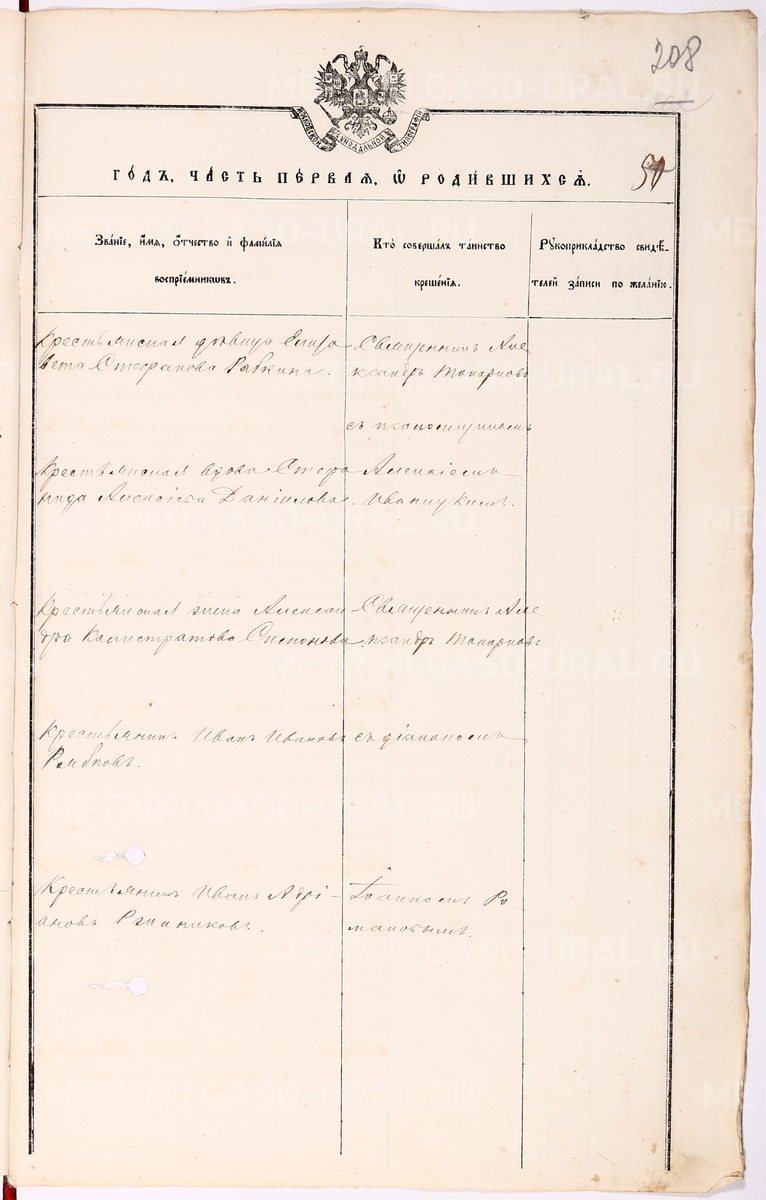 208
МОСКОВСКОЙ СѴНОДАЛЬНОЙ ТИПОГРАФІИ
ГО́ДЪ, ЧА́СТЬ ПЕ́РВАѦ, Ѽ РОДИ́ВШИХСѦ.
50
Зва́ніе, и́мѧ, о́тчество и фами́лїѧ
воспрїе́мникѡвъ.
Кто̀ соверша́лъ та́инство
креще́нїѧ.
Рꙋкоприкла́дство свидѣ́-
телей за́писи по жела́нїю.
Крестьянская дѣвица Елиза
вета Стефанова Рябкина.
Священникъ Але
ксандръ Топорковъ
съ псаломщикомъ
Крестьянская вдова Степа
нида Алексіева Данилова.
Алексіемъ
Иваницкимъ.
Крестьянская жена Алексан-
дра Калистратова Симонова.
Священникъ Але
ксандръ Топорковъ
Крестьянинъ Иванъ Ивановъ
Рябковъ.
съ діакономъ
Крестьянинъ Иванъ Адрі-
ановъ
Іоанномъ Ро
мановымъ.
METRIKI.GASO-URAL.RU